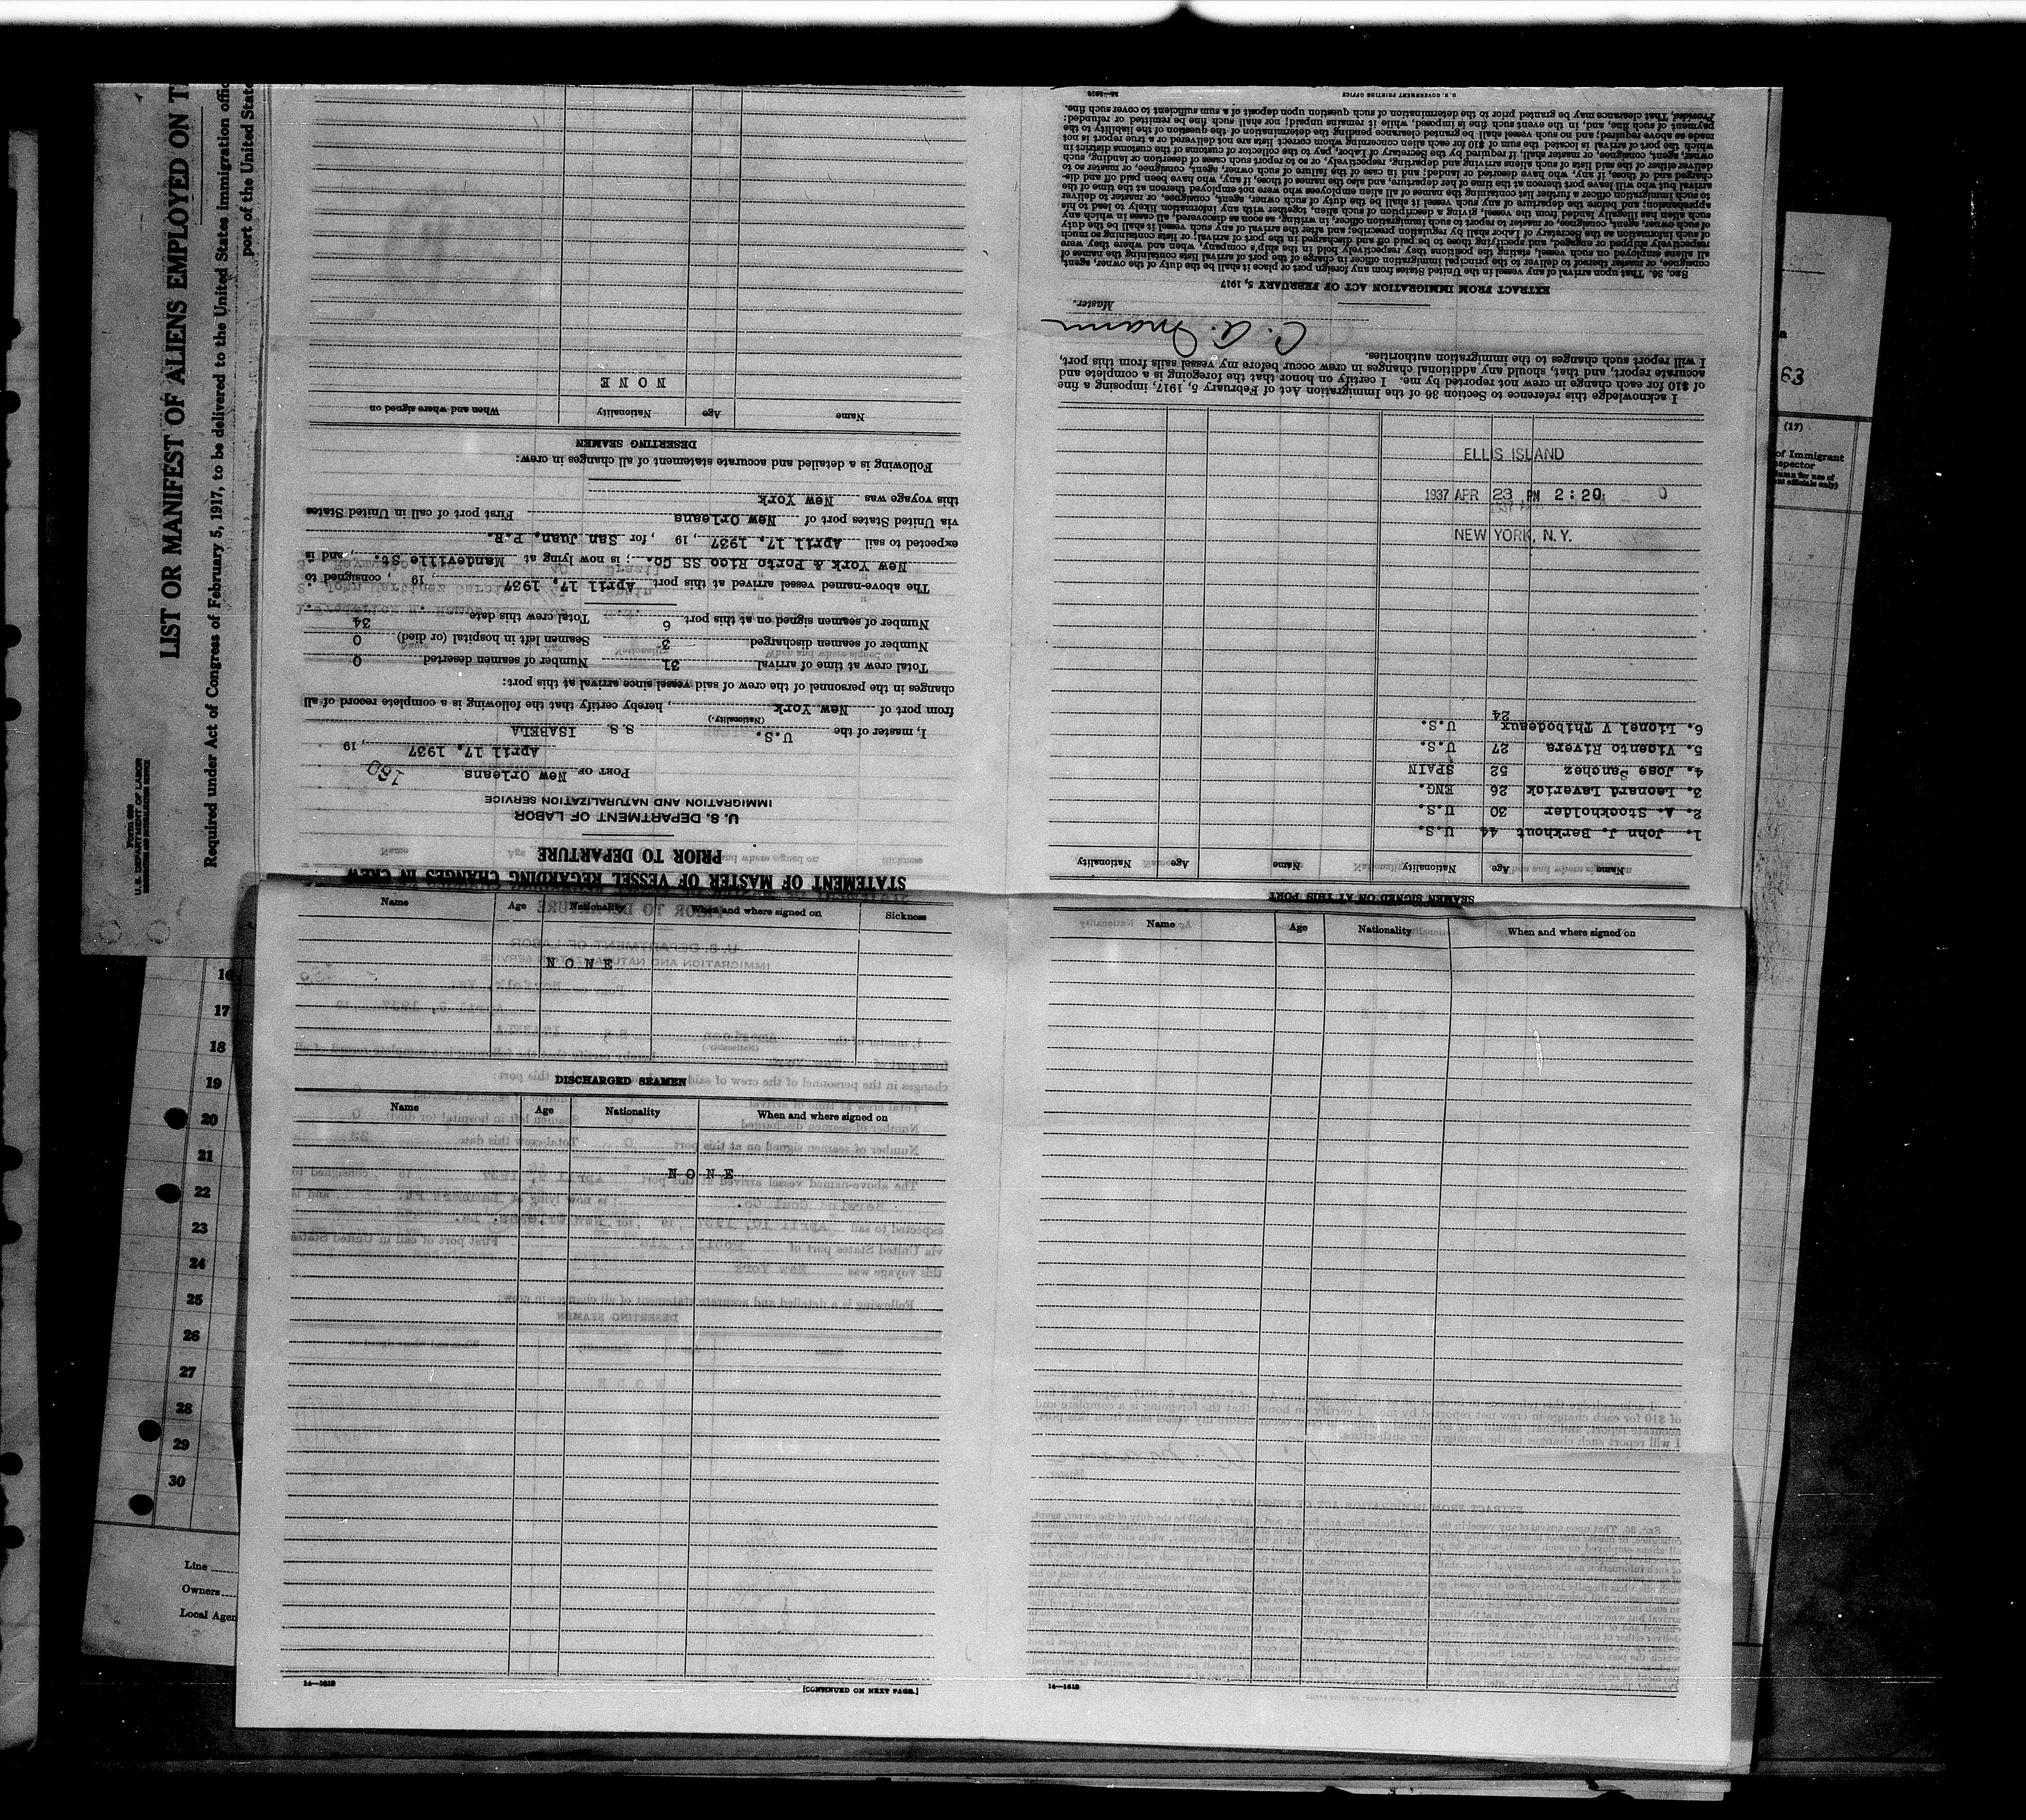 LIST OR MANIFEST OF ALIENS EMPLOYED ON T
Required under Act of Congress of February 5, 1917, to be delivered to the United States Immigration offic
port of the United State
U.S. DEPARTMENT OF LABOR
STATEMENT OF MASTER OF VESSEL REGARDING CHANGES IN CREW
PRIOR TO DEPARTURE
U. S. DEPARTMENT OF LABOR
IMMIGRATION AND NATURALIZATION SERVICE
PORT OF New Orleans
April 17, 1937, 19
I, master of the U.S. S.S. ISABELA
(Nationality.)
from port of New York, hereby certify that the following is a complete record of all
changes in the personnel of the crew of said vessel since arrival at this port:
Total crew at time of arrival 31 Number of seamen deserted 0
Number of seamen discharged 3 Seamen left in hospital (or died) 0
Number of seamen signed on at this port 6 Total crew this date 34
The above-named vessel arrived at this port April 17, 1937, 19 , consigned to
New York & Porto Rico SS Co. ; is now lying at Mandeville St. , and is
expected to sail April 17, 1937, 19 , for San Juan, P.R.
via United States port of New Orleans First port of call in United States
this voyage was New York
Following is a detailed and accurate statement of all changes in crew:
DESERTING SEAMEN
Name Age Nationality When and where signed on
NONE
SEAMEN SIGNED ON AT THIS PORT
Name Age Nationality Name Age Nationality
1. John J. Berkhout 44 U.S.
2. A. Stockholder 30 U.S.
3. Leonard Laverick 26 ENG.
4. Jose Sanchez 52 SPAIN
5. Vicento Rivera 27 U.S.
6. Lionel V Thibodeaux 24 U.S.
ELLIS ISLAND
1937 APR 23 PM 2:20
NEW YORK, N.Y.
I acknowledge this reference to Section 36 of the Immigration Act of February 5, 1917, imposing a fine
of $10 for each change in crew not reported by me. I certify on honor that the foregoing is a complete and
accurate report, and that, should any additional changes in crew occur before my vessel sails from this port,
I will report such changes to the immigration authorities.
C. A. Mann
Master.
EXTRACT FROM IMMIGRATION ACT OF FEBRUARY 5, 1917
SEC. 36. That upon arrival of any vessel in the United States from any foreign port or place it shall be the duty of the owner, agent,
consignee, or master thereof to deliver to the principal immigration officer in charge of the port of arrival lists containing the names of
all aliens employed on such vessel, stating the positions they respectively hold in the ship's company, when and where they were
respectively shipped or engaged, and specifying those to be paid off and discharged in the port of arrival; or lists containing so much
of such information as the Secretary of Labor shall by regulation prescribe; and after the arrival of any such vessel it shall be the duty
of such owner, agent, consignee, or master to report to such immigration officer, in writing, as soon as discovered, all cases in which any
such alien has illegally landed from the vessel, giving a description of such alien, together with any information likely to lead to his
apprehension; and before the departure of any such vessel it shall be the duty of such owner, agent, consignee, or master to deliver
to such immigration officer a further list containing the names of all alien employees who were not employed thereon at the time of the
arrival but who will leave port thereon at the time of her departure, and also the names of those, if any, who have been paid off and dis-
charged and of those, if any, who have deserted or landed; and in case of the failure of such owner, agent, consignee, or master so to
deliver either of the said lists of such aliens arriving and departing, respectively, or so to report such cases of desertion or landing, such
owner, agent, consignee, or master shall, if required by the Secretary of Labor, pay to the collector of customs of the customs district in
which the port of arrival is located the sum of $10 for each alien concerning whom correct lists are not delivered or a true report is not
made as above required; and no such vessel shall be granted clearance pending the determination of the question of the liability to the
payment of such fine, and, in the event such fine is imposed, while it remains unpaid; nor shall such fine be remitted or refunded:
Provided, That clearance may be granted prior to the determination of such question upon deposit of a sum sufficient to cover such fine.
U. S. GOVERNMENT PRINTING OFFICE
63
(17)
of Immigrant
Name Age Nationality When and where signed on Sickness
NONE
DISCHARGED SEAMEN
Name Age Nationality When and where signed on
NONE
14—1613
[CONTINUED ON NEXT PAGE.]
Name Age Nationality When and where signed on
14—1613
16
17
18
19
20
21
22
23
24
25
26
27
28
29
30
Line
Owners
Local Agen